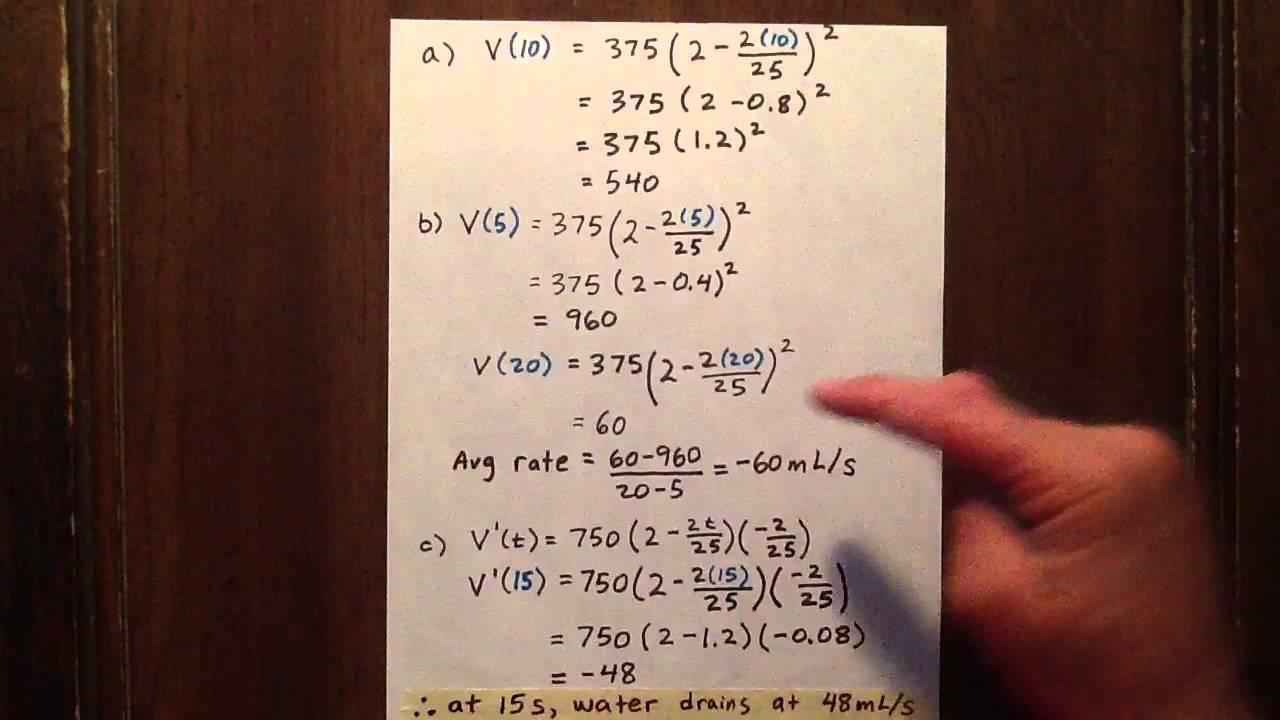 a) V(10) = 375(2 - 2(10)/25)²
= 375 (2 - 0.8)²
= 375 (1.2)²
= 540
b) V(5) = 375(2 - 2(5)/25)²
= 375 (2 - 0.4)²
= 960
V(20) = 375(2 - 2(20)/25)²
= 60
Avg rate = 60-960/20-5 = -60mL/s
c) V'(t) = 750(2 - 2t/25)(-2/25)
V'(15) = 750(2 - 2(15)/25)(-2/25)
= 750 (2 - 1.2)(-0.08)
= -48
∴ at 15s, water drains at 48mL/s